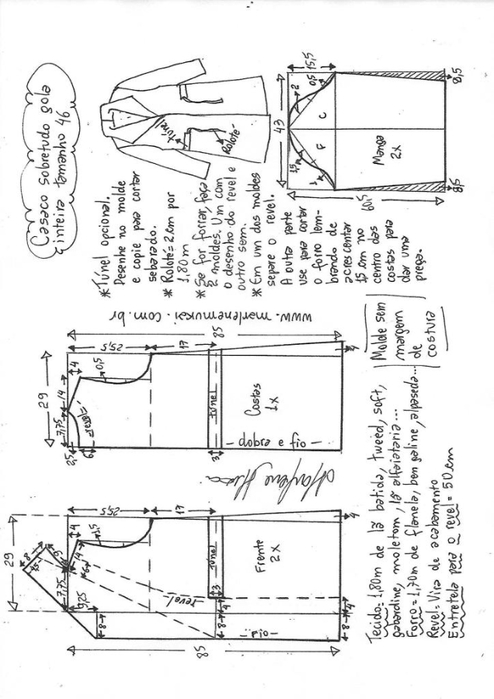 Casaco sobretudo gola
inteira tamanho 46
*Túnel opcional.
Desenhe no molde
e copie para cortar
sebarado.
*Rolotê=2cm por
1,80m
*Se for forrar, faça
2 moldes. Um com
o desenho do revel e
outro sem.
*Em um dos moldes
separe o revel.
A outra parte
use para cortar
o forro lem-
brando de
acrescentar
15cm no
centro das
costas para
dar uma
prega.
túnel
Rolotê
15,5
0,5
2
0,5
43
C
F
Manga
2x
1,5
1
60,5
8,5
www.marlenemukai.com.br
85
25,5
17
4
0,5
14
29
7,75
revel
2,5
6
túnel
3
Costas
1x
dobra e fio
Molde sem
margem
de
costura
Marlene Mukai
85
25,5
17
4
29
8
14
7,75
9,25
8
revel
túnel
3
4
4
8
8
Frente
2x
fio
Tecido=1,80m de lã batida, tweed, soft,
gabardine, moletom, lã alfaiataria...
Forro=1,70m de flanela, bengaline, alpaseda...
Revel=Vira de acabamento
Entretela para o revel=50cm